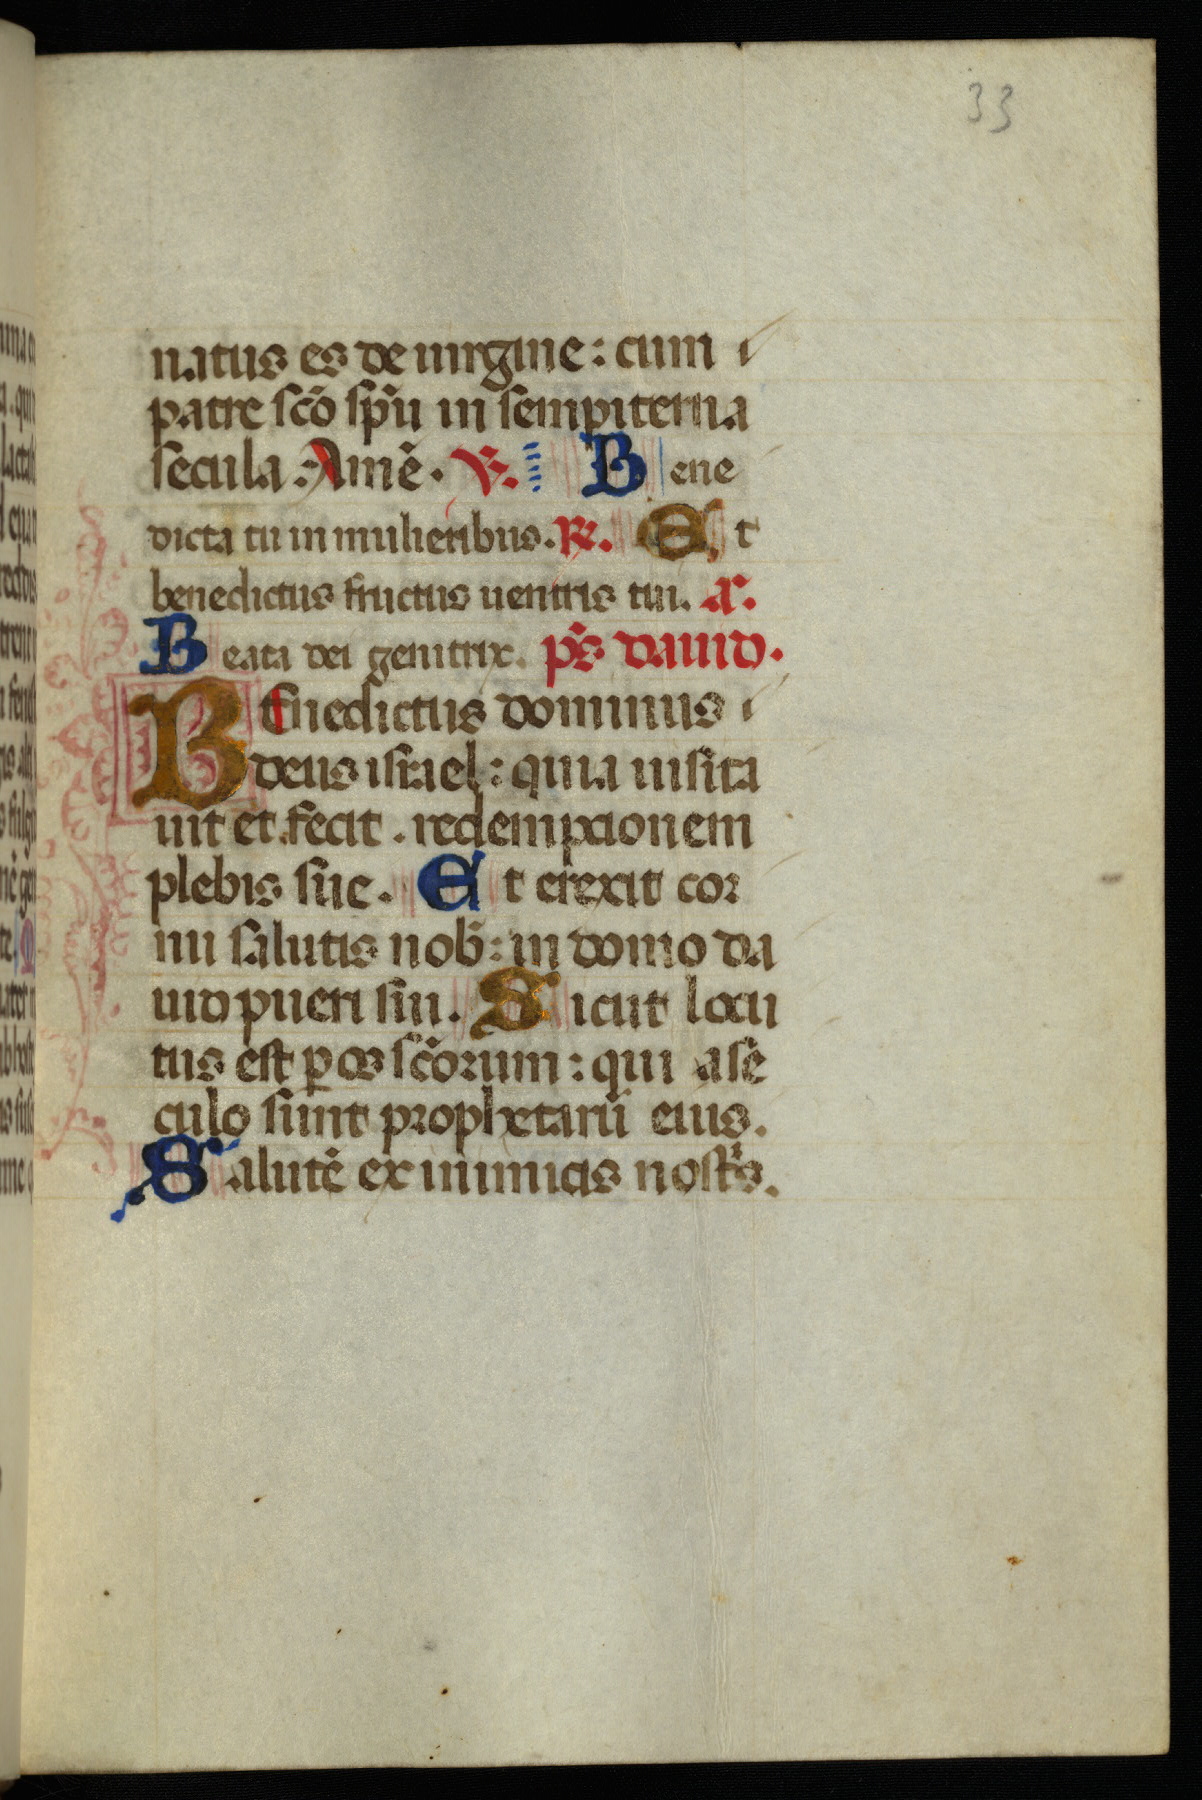 33
natus es de uirgine: cum
patre scō spū in sempiterna
secula. Amē. ℣. Bene
dicta tu in mulieribus. ℟. Et
benedictus fructus uentris tui. a͞.
Beata dei genitrix. p̄s dauid.
Benedictus dominus
deus israel: quia uisita
uit et fecit. redempcionem
plebis sue. Et erexit cor
nu salutis nob̄: in domo da
uid pueri sui. Sicut locu
tus est ꝑ os scōrum: qui a sē
culo sunt prophetarū eius.
Salutē ex inimicis nost̄s.